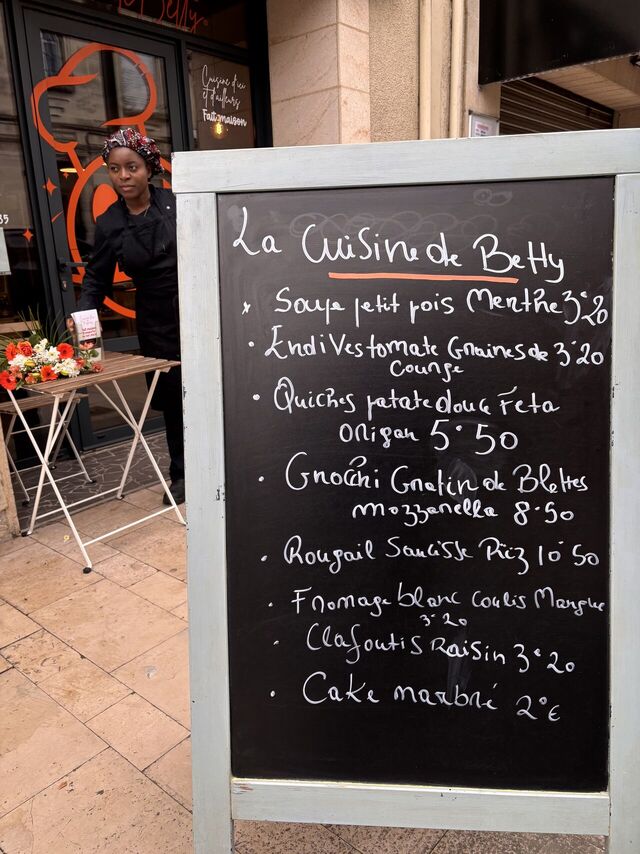 Betty
Cuisine d'ici
et d'ailleurs
Fait maison
35
La Cuisine de Betty
Soupe petit pois Menthe 3°20
Endives tomate Graines de 3°20
Courge
Quiches patate douce Féta
Origan 5°50
Gnocchi Gratin de Blettes
Mozzarella 8.50
Rougail Saucisse Riz 10°50
Fromage blanc Coulis Mangue
3°20
Clafoutis Raisin 3°20
Cake marbré 2°€